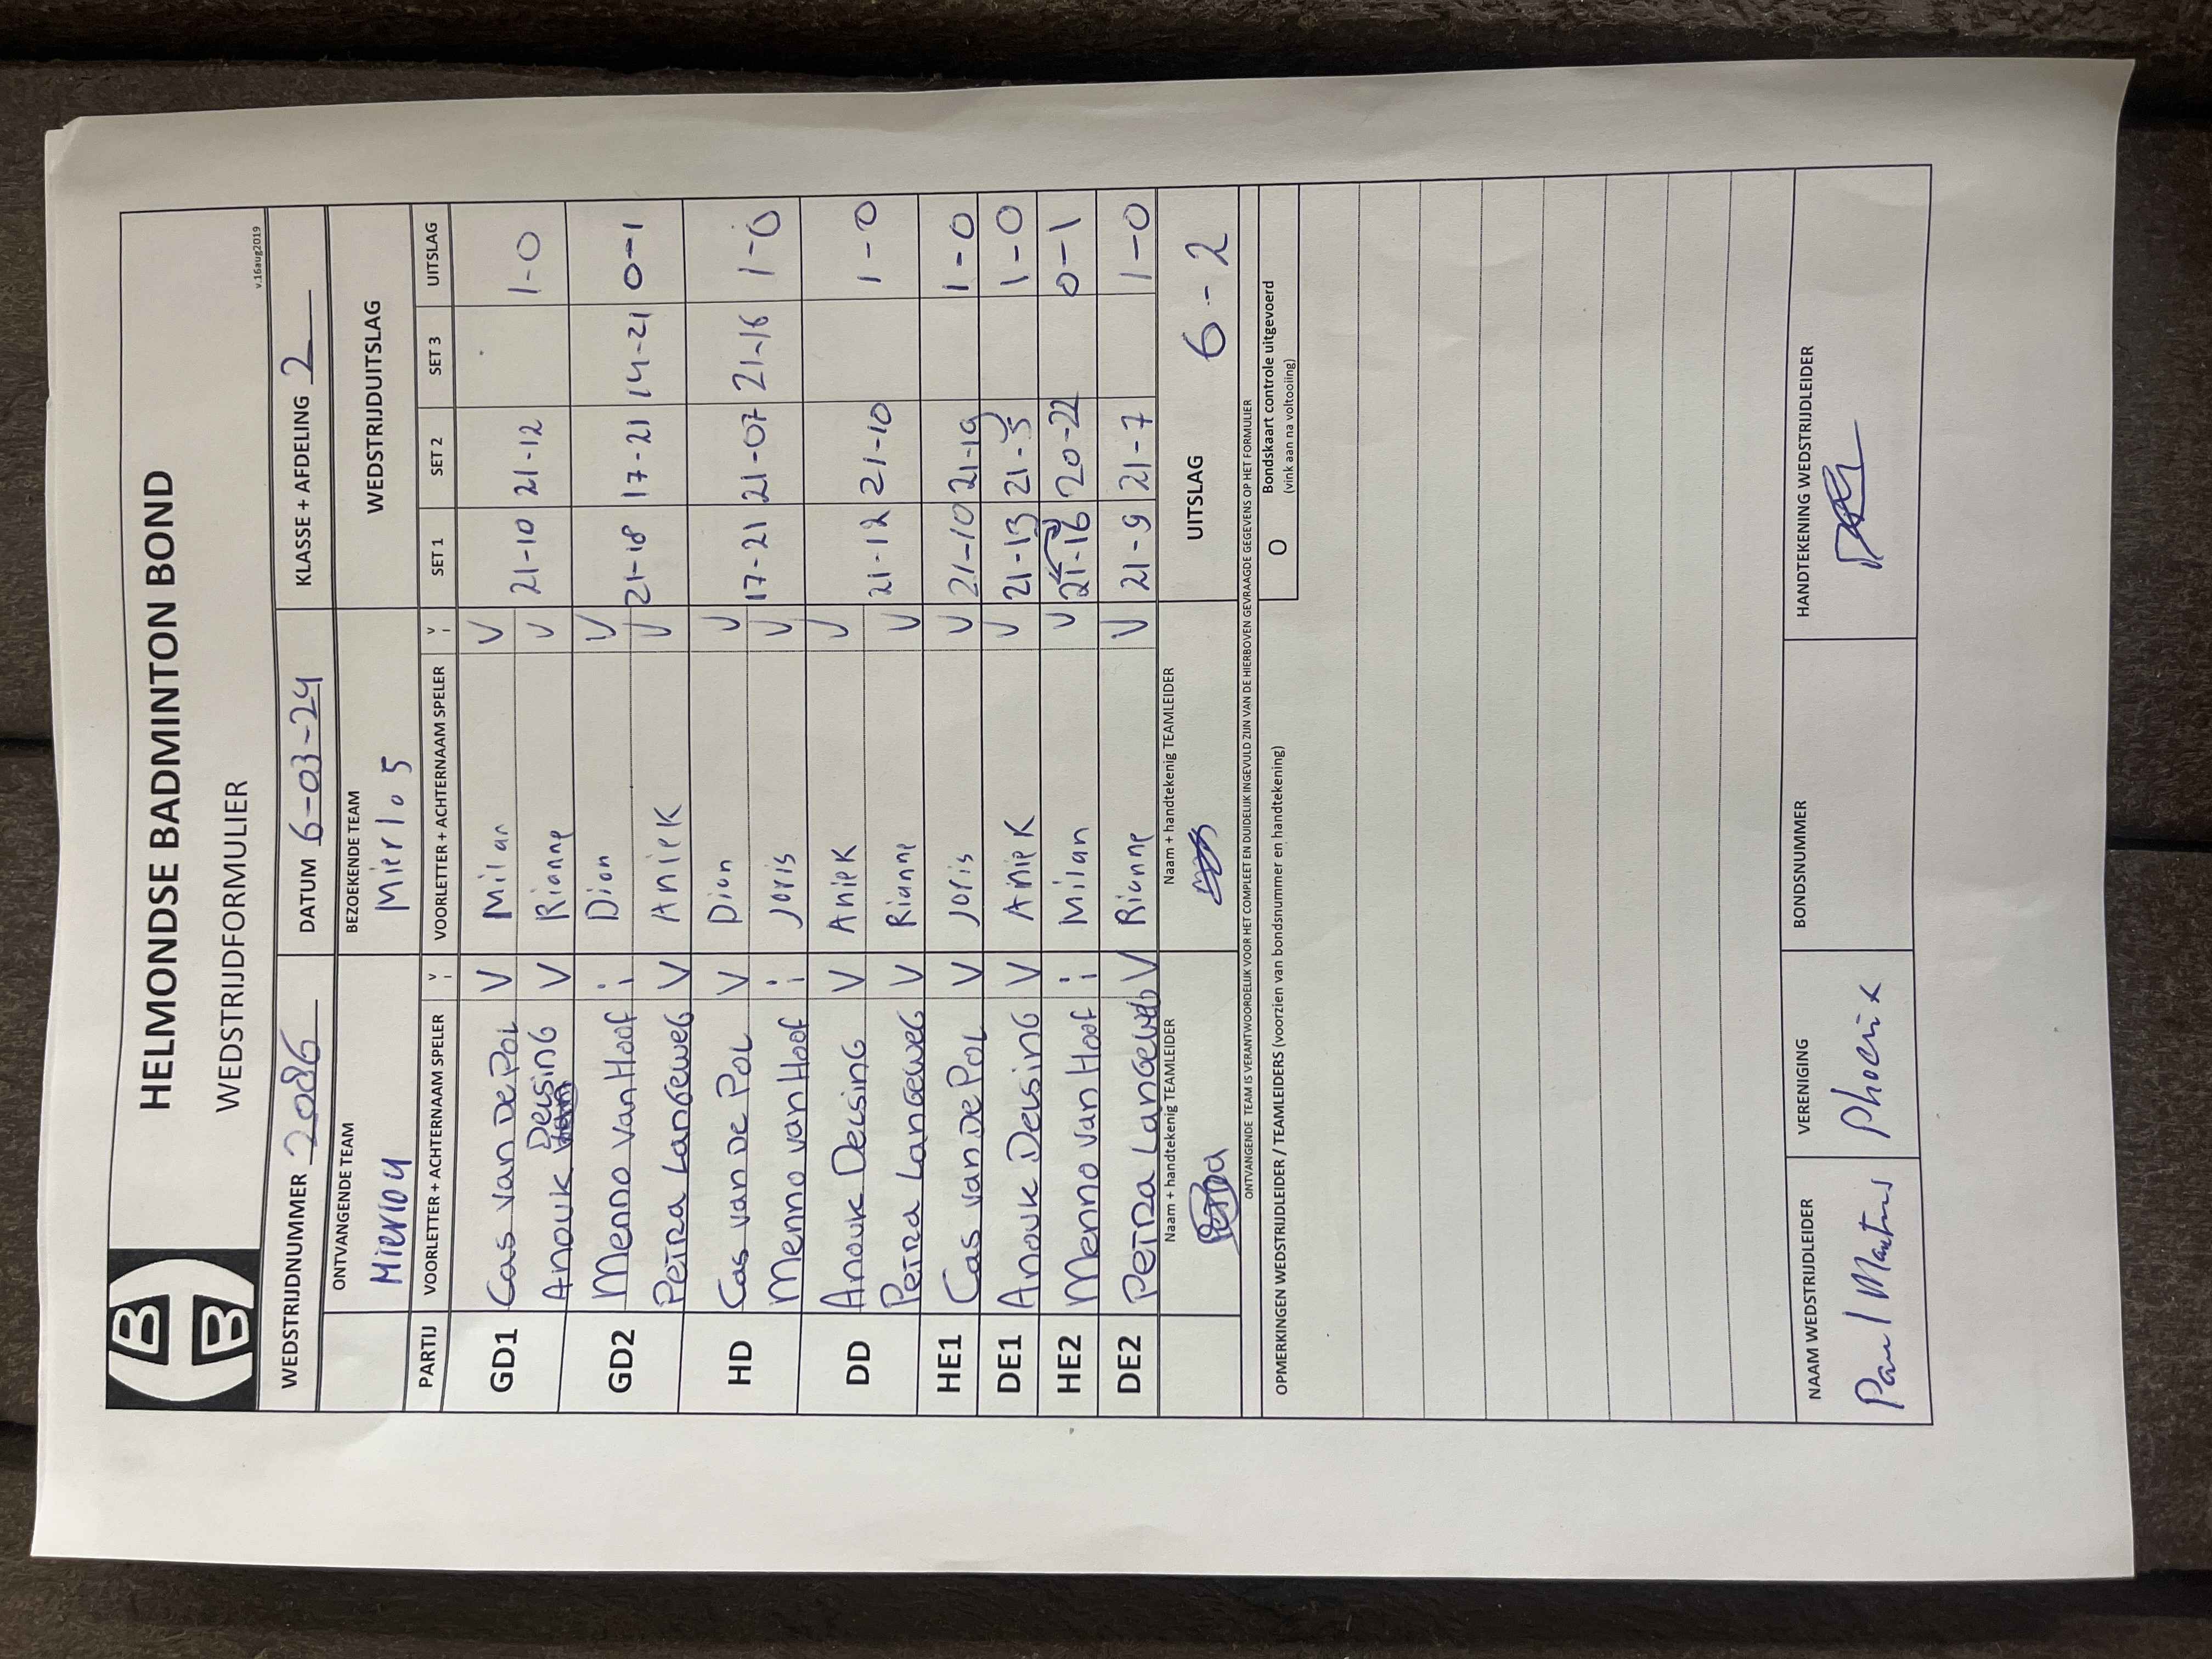 HELMONDSE BADMINTON BOND
WEDSTRIJDFORMULIER
v.16aug2019
WEDSTRIJDNUMMER 2086 DATUM 6-03-24 KLASSE + AFDELING 2
ONTVANGENDE TEAM BEZOEKENDE TEAM WEDSTRIJDUITSLAG
Mierlo 4 Mierlo 5
PARTIJ VOORLETTER + ACHTERNAAM SPELER V i VOORLETTER + ACHTERNAAM SPELER V i SET 1 SET 2 SET 3 UITSLAG
GD1 Cas van De Pol V Milan V
Anouk Deusing V Rianne V 21-10 21-12 1-0
GD2 Menno van Hoof i Dion V
Petra Langeweg V Aniek V 21-18 17-21 14-21 0-1
HD Cas van De Pol V Dion V
Menno van Hoof i Joris V 17-21 21-07 21-16 1-0
DD Anouk Deusing V Aniek V
Petra Langeweg V Rianne V 21-12 21-10 1-0
HE1 Cas van De Pol V Joris V 21-10 21-19 1-0
DE1 Anouk Deusing V Aniek V 21-13 21- 1-0
HE2 Menno van Hoof i Milan V 20-22 0-1
DE2 Petra Langeweg V Rianne V 21-9 21-7 1-0
Naam + handtekenig TEAMLEIDER Naam + handtekenig TEAMLEIDER UITSLAG 6-2
Petra
ONTVANGENDE TEAM IS VERANTWOORDELIJK VOOR HET COMPLEET EN DUIDELIJK INGEVULD ZIJN VAN DE HIERBOVEN GEVRAAGDE GEGEVENS OP HET FORMULIER
OPMERKINGEN WEDSTRIJDLEIDER / TEAMLEIDERS (voorzien van bondsnummer en handtekening) O Bondskaart controle uitgevoerd
(vink aan na voltooiing)
NAAM WEDSTRIJDLEIDER VERENIGING BONDSNUMMER HANDTEKENING WEDSTRIJDLEIDER
Paul Martens Phoenix